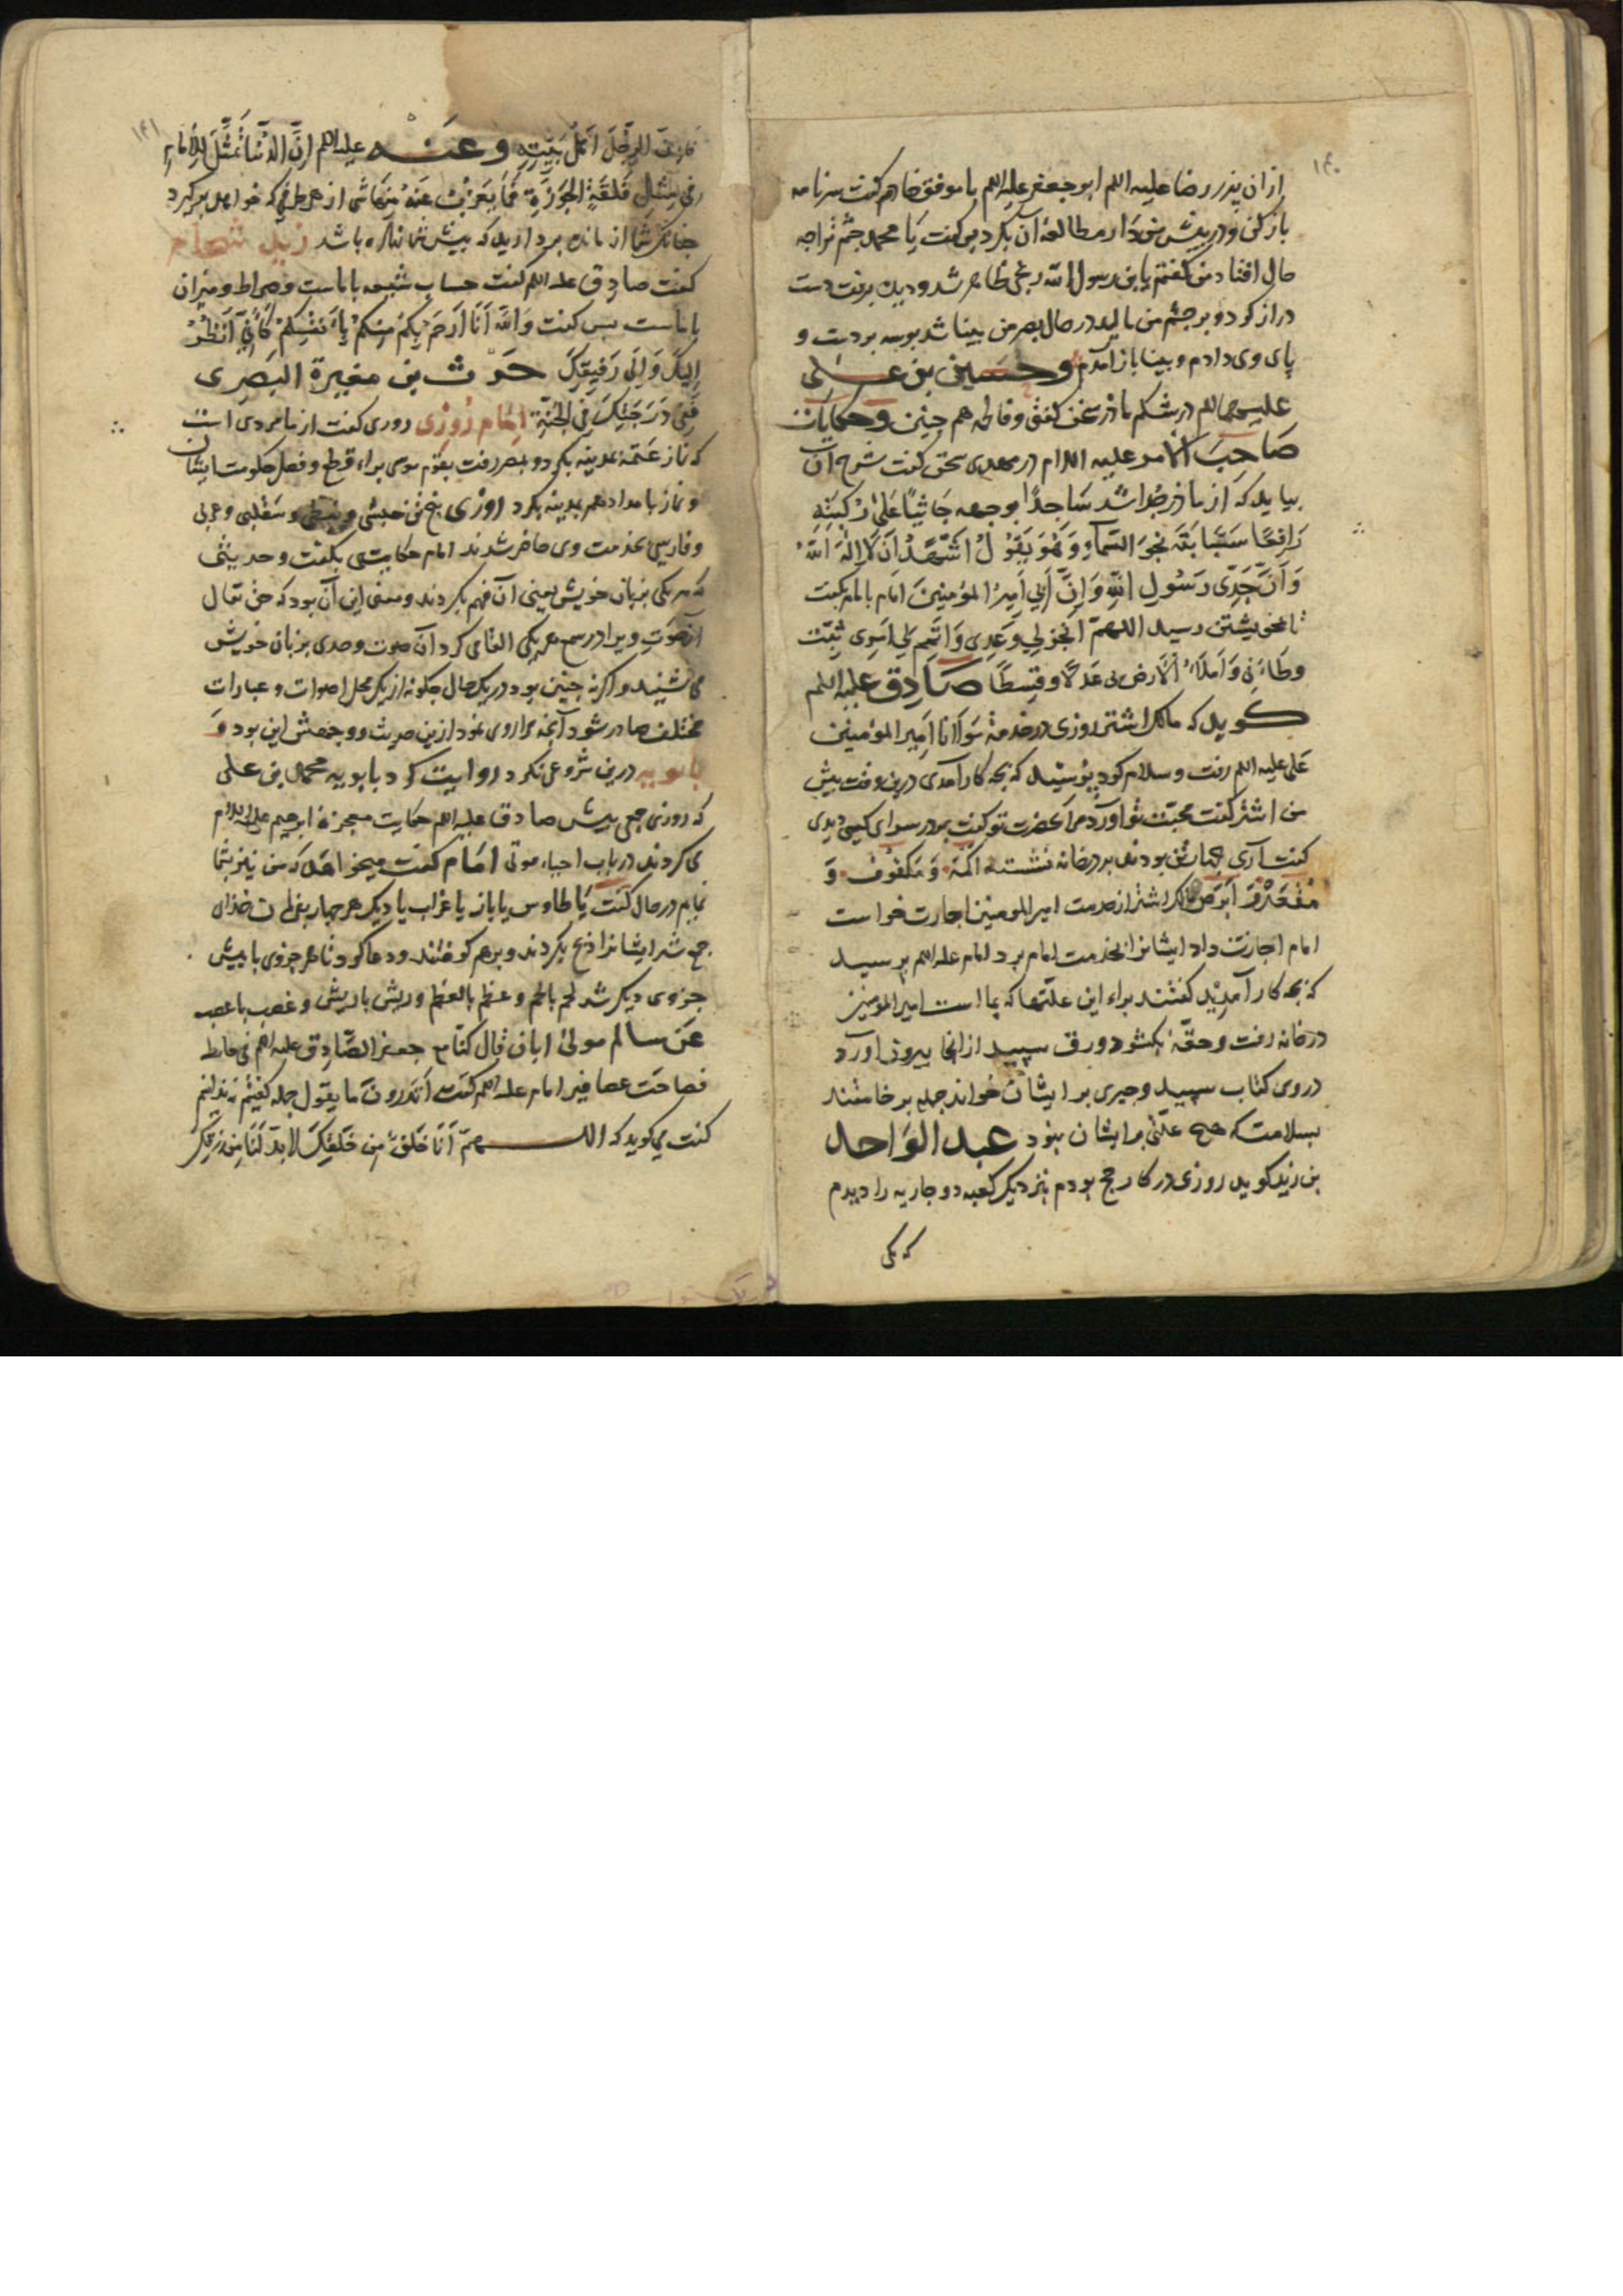 ۱۴۰
از ان پذر رضا علیه اللم ابو جعفر علیه اللم با موفق خاهم کفت سرنامه
باز کن و در پیش من دار مطالعهٔ آن بکرد بس کفت یَا محمد چشم تراجه
حال افتاد من کفتم یا بن رسول الله رنجی ظاهر شد و دیده برفت دست
دراز کرد و بر چشم من مالید در حال بصر من بینا شد بوسه بر دست و
پای وی دادم و بینا باز آمدم وحسین بن عــلی
علیهما اللم در شکم ماذر سخن کفتی و فاطمه هم جنین وحکایات
صاحب الامر علیه السلام در مهدی سخن کفت شرح آن
بیاید که از ماذر جُدا شد سَاجدًا بوجهه جَاثیًا عَلیٰ رُکبتَیهِ
رَافِعًا سَبّابَتَه نحوَ السّمآءِ وَ هُوَ یَقوُلُ اشْهَدُ اَنْ لَا اِلٰهَ اِلّا اللّهُ
وَ اَنَّ جَدّی رَسُول اللّهِ وَ اِنَّ اَبی اَمیرُ المؤمنینَ امَام با امام بکفت
تا بخویشتن رسید اللهمّ انجِزلی وَعدِی وَ اَتمِم لی اَمرِی و ثبّت
وطاَتی وَ اَملأ الاَرض بی عَدلًا و قِسطًا صَادِق علیه اللم
کـوید که مالک اشتر روزی در خدمهٔ مَولانا اَمیر المؤمنین
عَلی علیه اللم رفت و سلام کرد پُرسید که بجه کار آمدی درین وقت بیش
من اشتر کفت محبّت تو آورد مرا بحضرت تو کفت بر در سرای کسی دیدی
کفت آری جهار تن بودند بر در خانه نشسته اکمه و مکفوف وَ
مُقعَد وَ اَبرَص مالک اشتر از خدمت امیر المومنین اجازت خواست
امام اجازت داد ایشانرا بخدمت امام برد امام علیه اللم پرسید
که بجه کار آمدید کفتند براء این علّتها که بما است امیر المومنین
در خانه رفت و حقّه بکشود ورق سپید از انجا بیرون آورد
در وی کتاب سپید وجیزی بر ایشان خواند جمله بر خاستند
بسلامت که هیچ علّتی بر ایشان نبود عبد الوَاحد
بن زید کوید روزی در کار حج بودم بنزدیک کعبه دو جاریه را دیدم
که یکی
۱۴۱
للرجُل اَهلُ بَیتِهِ وعَنــه علیه اللم اِنَّ الدّنیا تُمثَّلُ لِلاِمَامِ
فی مِثلِ فَلقَةِ الجَوزَةِ فمَا یَعزُبُ عَنهُ مِنهَا شی از هر طرفی که خواهد بر کیرد
جنانک شما از مایده بردارید که پیش شما نهاده باشد زید شحام
کفت صادِق علیه اللم کفت حساب شیعه با ماست و صراط و میزان
با ماست بس کفت وَ اللّهِ اَنَا اَرحَمُ بِکُم مِنکُم بِاَنفسِکُم کَاَنّی اَنظُرُ
اِلَیکَ وَ اِلَی رَفیقِکَ حَرث بن مغیرة البَصری
فی دَرَجَتِکَ فی الجَنّةِ امَام رُوزی دوری کفت از ما مردی است
که نماز عتمهٔ بمدینه بکرد و بمصر رفت بقوم موسی براء قطع و فصل حکومت ایشان
و نماز بامداد هم بمدینه بکرد روزی پنج تن حبشی و نبطی و سقلبی و عربی
و فارسی بخدمت وی حاضر شدند امام حکایتی بکفت و حدیثی
که هر یکی بزبان خویش یعنی آن فهم بکردند و معنی این آن بود که حق تعالی
آن صَوت ویرا در سمع هر یکی القا می کرد آن صوت و صدی بزبان خویش
می شنید و اکر نه جنین بود در یک حال جکونه از یک محل اصوات و عبارات
مختلف صادر شود آنجه مرا روی نمود ازین حدیث و وجهش این بود وَ
بابویه درین شروعی نکرد روایت کرد بابویه محمد بن علی
که روزی جمعی پیش صادق علیه اللم حکایت معجزهٔ ابرهیم علیه السلام
می کردند در باب احیاء موتی امَام کفت میخواهَد که من نیز بشما
نمایم در حال کفت یَا طاوس یا باز یا غراب یا دیک هر جهار بفرمان خذای
جمع شد ایشانرا ذبح بکردند و برهم کوفتند و دعا کرد تا هر جزوی با پیش
جزوی دیکر شد لحم با لحم و عظم با لعظم و ریش با ریش و عصب با عصب
عَن سالم مولیٰ ابان قال کنّا مع جعفر الصّادق علیه اللم فی حایط
فصاحَت عصافیر امام علیه اللم کفت اَتدرون ما یقول جمله کفتیم نه ندانیم
کفت می کوید که اللــهمّ اَنَا خَلق من خَلقِکَ لابدّ لَنا مِن رِزقِک